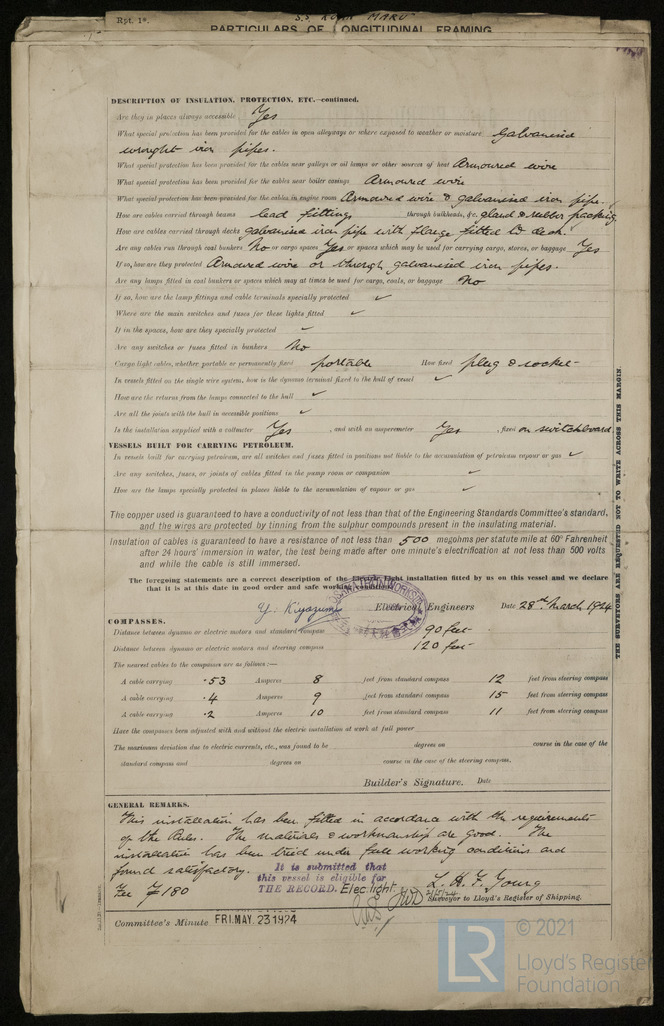 Rpt. 1*.
PARTICULARS OF LONGITUDINAL FRAMING
DESCRIPTION OF INSULATION, PROTECTION, ETC.—continued.
Are they in places always accessible Yes
What special protection has been provided for the cables in open alleyways or where exposed to weather or moisture Galvanised
wrought iron pipes.
What special protection has been provided for the cables near galleys or oil lamps or other sources of heat Armoured wire
What special protection has been provided for the cables near boiler casings Armoured wire
What special protection has been provided for the cables in engine room Armoured wire & galvanised iron pipe.
How are cables carried through beams lead fittings through bulkheads, &c. gland & rubber packing
How are cables carried through decks galvanised iron pipe with flange fitted to deck.
Are any cables run through coal bunkers No or cargo spaces Yes or spaces which may be used for carrying cargo, stores, or baggage Yes
If so, how are they protected Armoured wire or through galvanised iron pipes.
Are any lamps fitted in coal bunkers or spaces which may at times be used for cargo, coals, or baggage No
If so, how are the lamp fittings and cable terminals specially protected ✓
Where are the main switches and fuses for these lights fitted ✓
If in the spaces, how are they specially protected ✓
Are any switches or fuses fitted in bunkers No
Cargo light cables, whether portable or permanently fixed portable How fixed plug & socket
In vessels fitted on the single wire system, how is the dynamo terminal fixed to the hull of vessel ✓
How are the returns from the lamps connected to the hull ✓
Are all the joints with the hull in accessible positions ✓
Is the installation supplied with a voltmeter Yes , and with an amperemeter Yes , fixed on switchboard
VESSELS BUILT FOR CARRYING PETROLEUM.
In vessels built for carrying petroleum, are all switches and fuses fitted in positions not liable to the accumulation of petroleum vapour or gas ✓
Are any switches, fuses, or joints of cables fitted in the pump room or companion ✓
How are the lamps specially protected in places liable to the accumulation of vapour or gas ✓
The copper used is guaranteed to have a conductivity of not less than that of the Engineering Standards Committee's standard,
and the wires are protected by tinning from the sulphur compounds present in the insulating material.
Insulation of cables is guaranteed to have a resistance of not less than 500 megohms per statute mile at 60° Fahrenheit
after 24 hours' immersion in water, the test being made after one minute's electrification at not less than 500 volts
and while the cable is still immersed.
The foregoing statements are a correct description of the Electric Light installation fitted by us on this vessel and we declare
that it is at this date in good order and safe working condition.
Electrical Engineers Date 28th March 1924
COMPASSES.
Distance between dynamo or electric motors and standard compass 90 feet
Distance between dynamo or electric motors and steering compass 120 feet
The nearest cables to the compasses are as follows:—
A cable carrying .53 Amperes 8 feet from standard compass 12 feet from steering compass
A cable carrying .4 Amperes 9 feet from standard compass 15 feet from steering compass
A cable carrying .2 Amperes 10 feet from standard compass 11 feet from steering compass
Have the compasses been adjusted with and without the electric installation at work at full power
The maximum deviation due to electric currents, etc., was found to be degrees on course in the case of the
standard compass and degrees on course in the case of the steering compass.
Builder's Signature. Date
GENERAL REMARKS.
This installation has been fitted in accordance with the requirements
of the Rules. The materials & workmanship are good. The
installation has been tried under full working conditions and
found satisfactory.
It is submitted that
this vessel is eligible for
THE RECORD. Elec. light.
Fee ¥ 180
L. H. F. Young
Surveyor to Lloyd's Register of Shipping.
Committee's Minute FRI. MAY. 23 1924
THE SURVEYORS ARE REQUESTED NOT TO WRITE ACROSS THIS MARGIN.
© 2021
LR
Lloyd's Register
Foundation